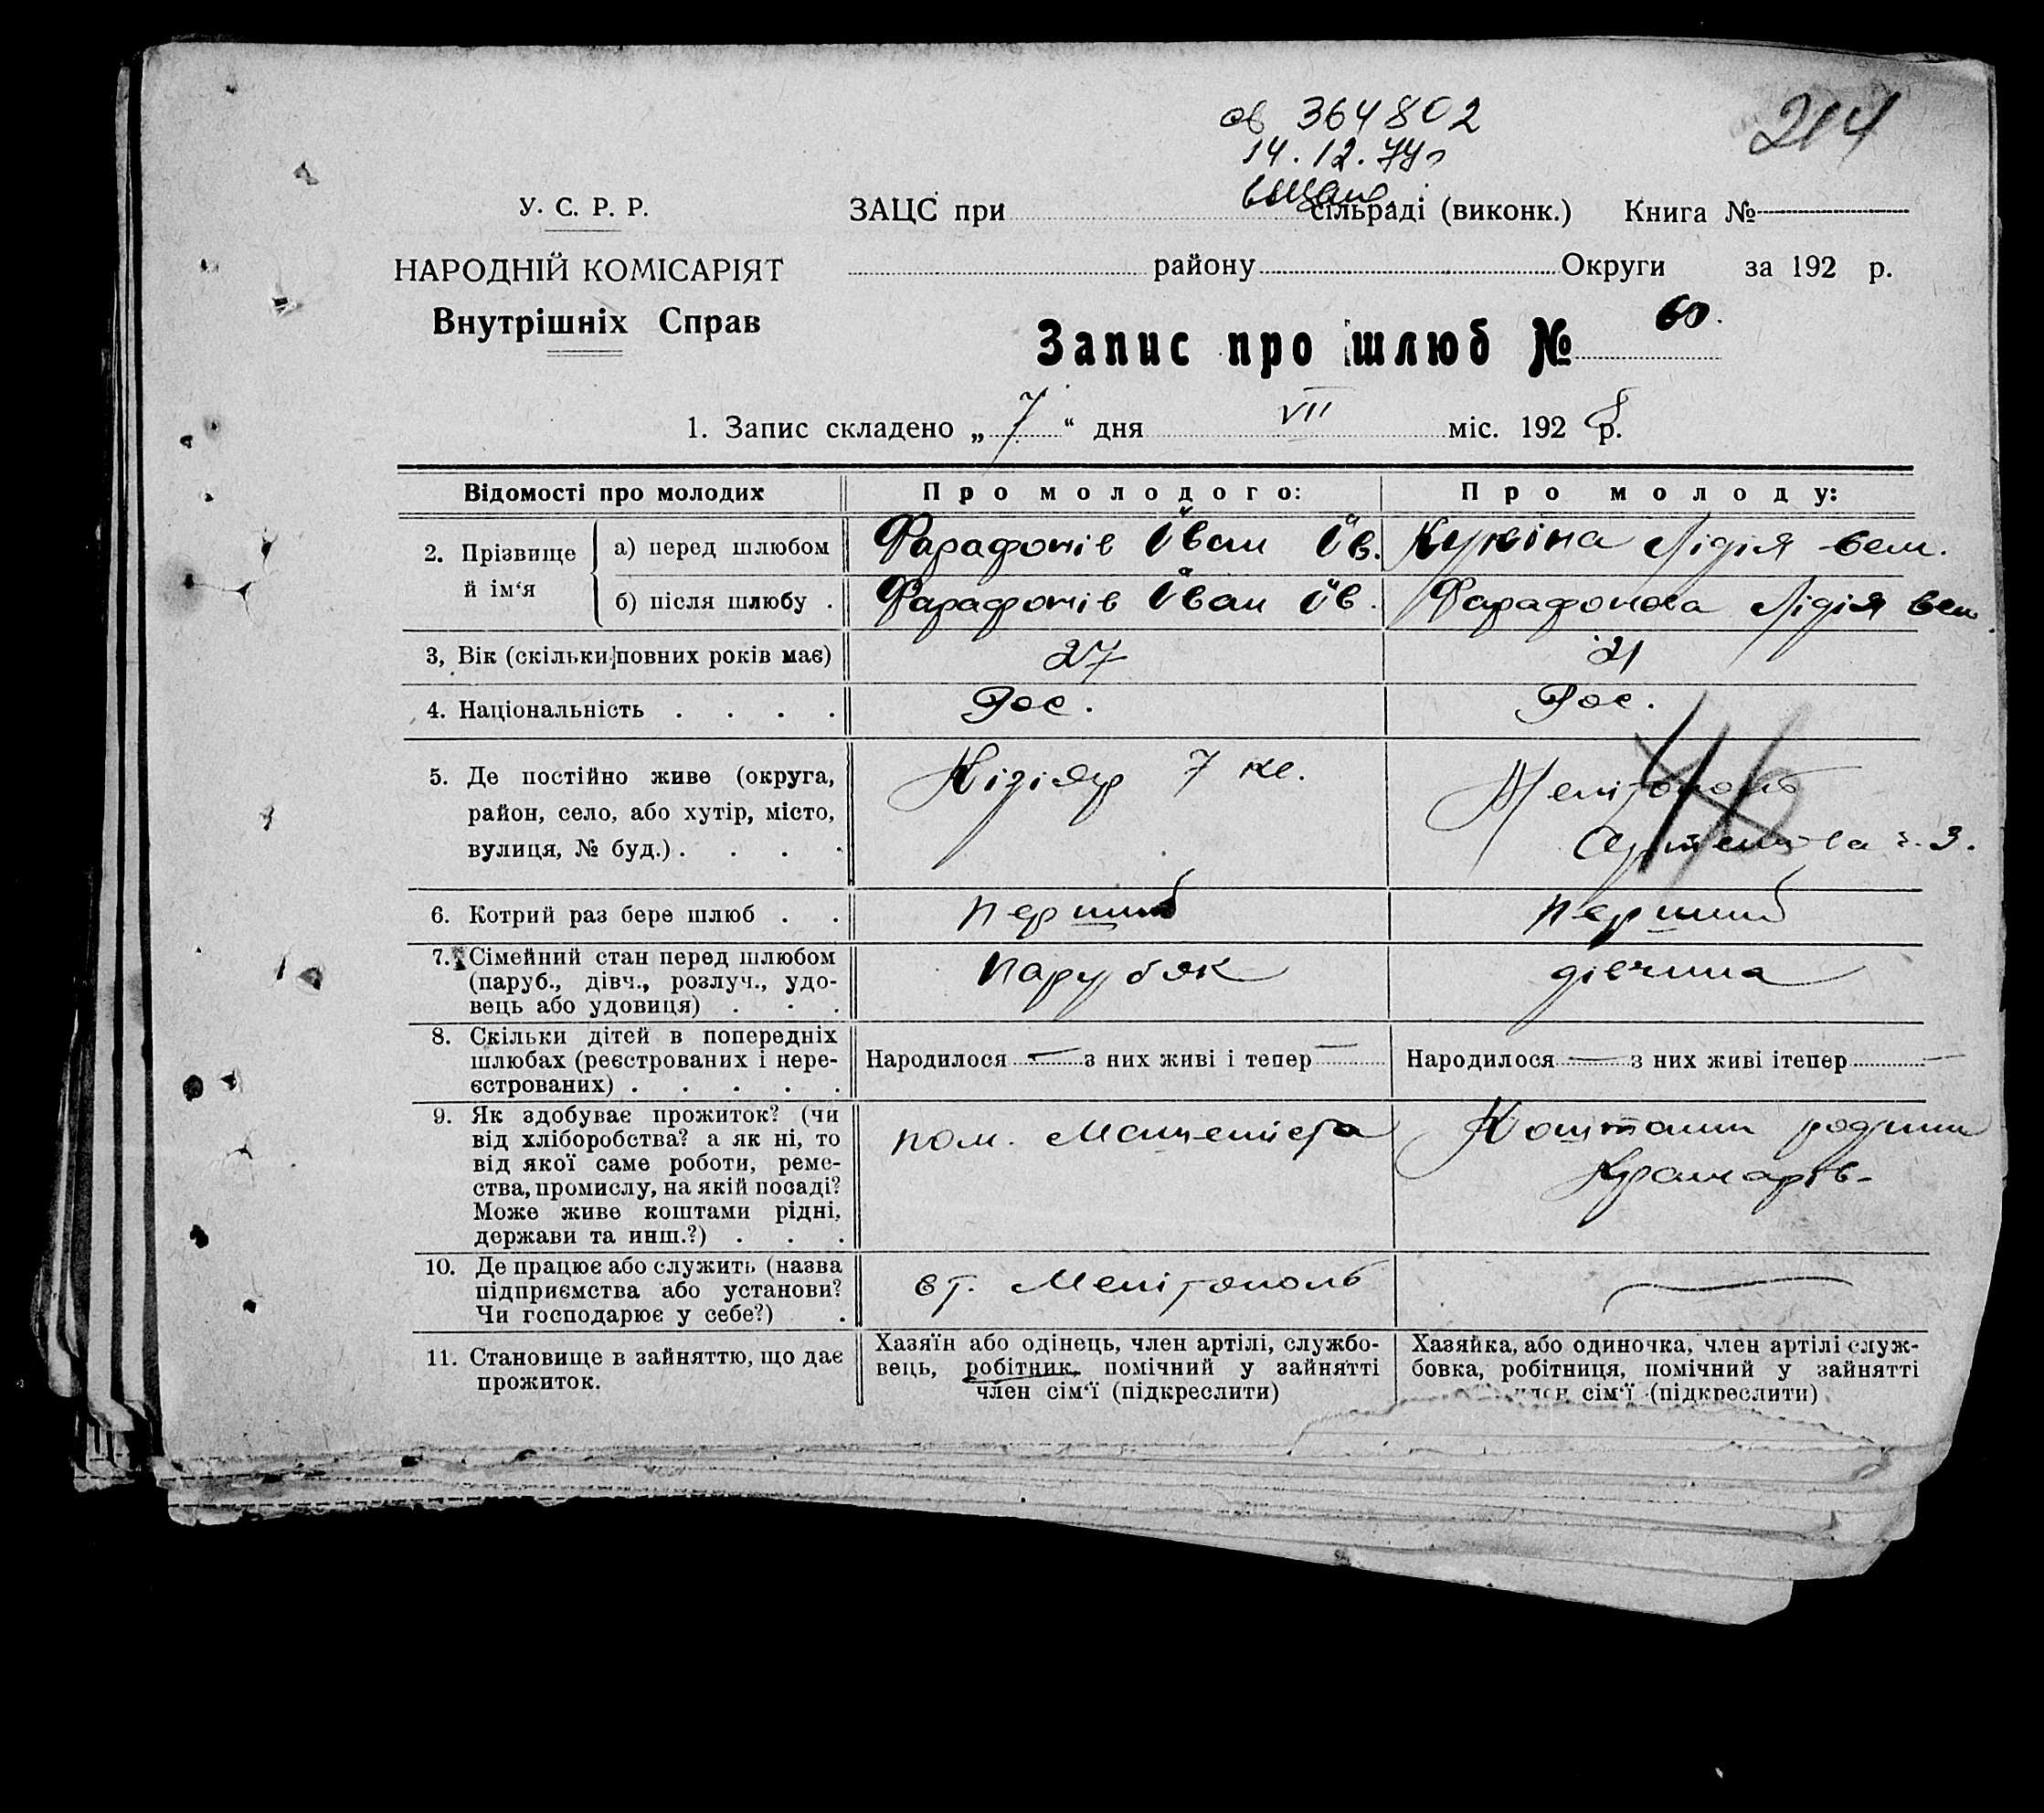 364802
214
14.12.74
У. С. Р. Р.
ЗАЦС при сільраді (виконк.) Книга №
НАРОДНІЙ КОМІСАРІЯТ
району Округи за 192 р.
Внутрішніх Справ
Запис про шлюб № 60.
1. Запис складено „7“ дня VII міс. 1928 р.
Відомості про молодих Про молодого: Про молоду:
2. Прізвище й ім‘я
а) перед шлюбом Фарафонів Іван Ів. Лідія
б) після шлюбу . Фарафонів Іван Ів. Фарафонова Лідія
3, Вік (скільки повних років має) 27 21
4. Національність . . . . Рос. Рос.
5. Де постійно живе (округа, Кізіяр 7 Мелітополь
район, село, або хутір, місто,
вулиця, № буд.) . . . . 3.
6. Котрий раз бере шлюб . . перший перший
7. Сімейний стан перед шлюбом парубок дівчина
(паруб., дівч., розлуч., удо-
вець або удовиця) . . .
8. Скільки дітей в попередніх
шлюбах (реєстрованих і нере- Народилося — з них живі і тепер — Народилося — з них живі ітепер —
єстрованих) . . . . .
9. Як здобуває прожиток? (чи пом. Машиніста Коштами родини
від хліборобства? а як ні, то
від якої саме роботи, реме-
ства, промислу, на якій посаді?
Може живе коштами рідні,
держави та инш.?) . . .
10. Де працює або служить (назва ст. Мелітополь —
підприємства або установи?
Чи господарює у себе?) .
11. Становище в зайняттю, що дає
прожиток.
Хазяїн або одінець, член артілі, службо-
вець, робітник, помічний у зайнятті
член сім‘ї (підкреслити)
Хазяйка, або одиночка, член артілі служ-
бовка, робітниця, помічний у зайнятті
член сім‘ї (підкреслити)